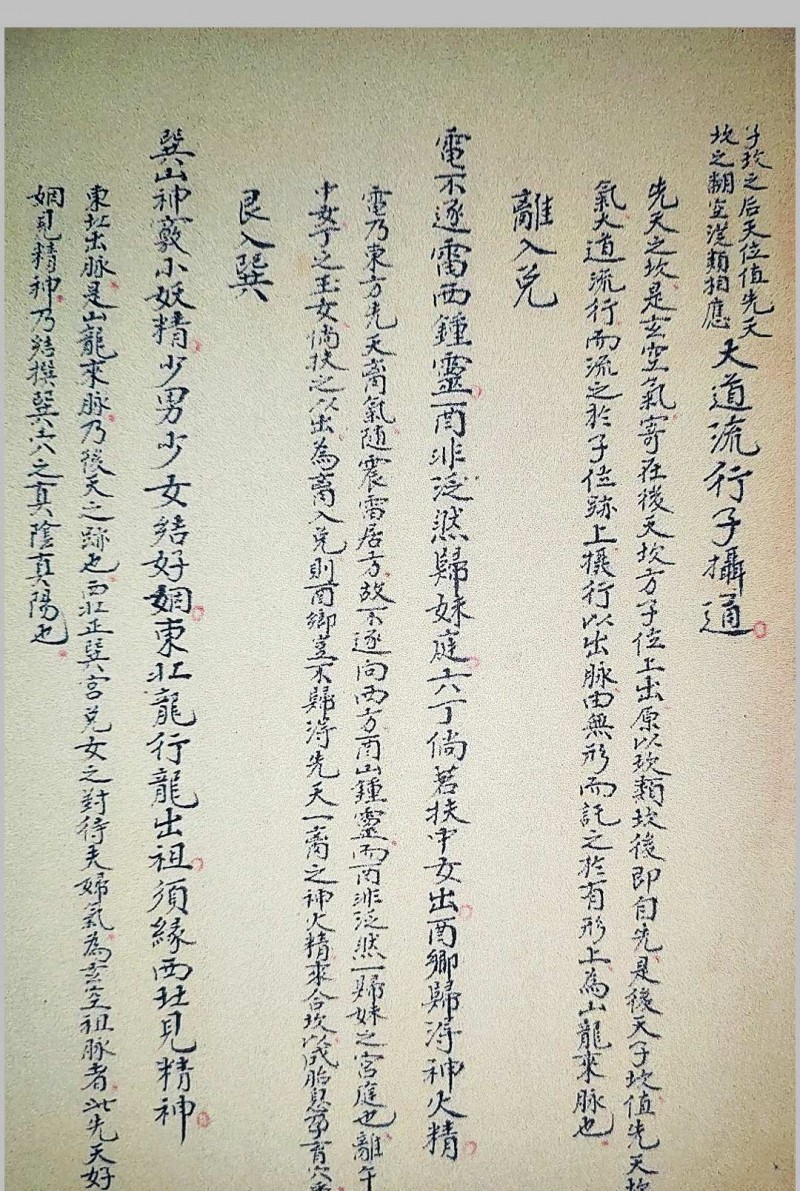 子坎之后天位值先天
坎之朝空從類相應
大道流行子攝通
先天之坎是玄空氣寄在後天坎方子位上出原以坎類坎後即自先是後天子坎值先天坎
氣大道流行而流之於子位跡上攝行以出脉由無形而託之於有形上為山龍來脉也
離入兌
電不逐雷西鍾靈酉非泛然歸妹庭六丁倘若扶中女出酉鄉歸得神火精
電乃東方先天离氣随震雷居方故不逐向西方酉山鍾靈而酉非泛然一歸妹之宮庭也離午
中女丁之玉女倘扶之以出為离入兌則酉鄉豈不歸得先天一离之神火精來合坎以成胎息孕育穴
艮入巽
巽山神竅小妖精少男少女結好姻東北龍行龍出祖須緣西北見精神
東北出脉是山龍來脉乃後天之跡也西北正巽宮兌女之對待夫婦氣為玄空祖脉者此先天好
姻見精神乃結撰巽六之真陰真陽也